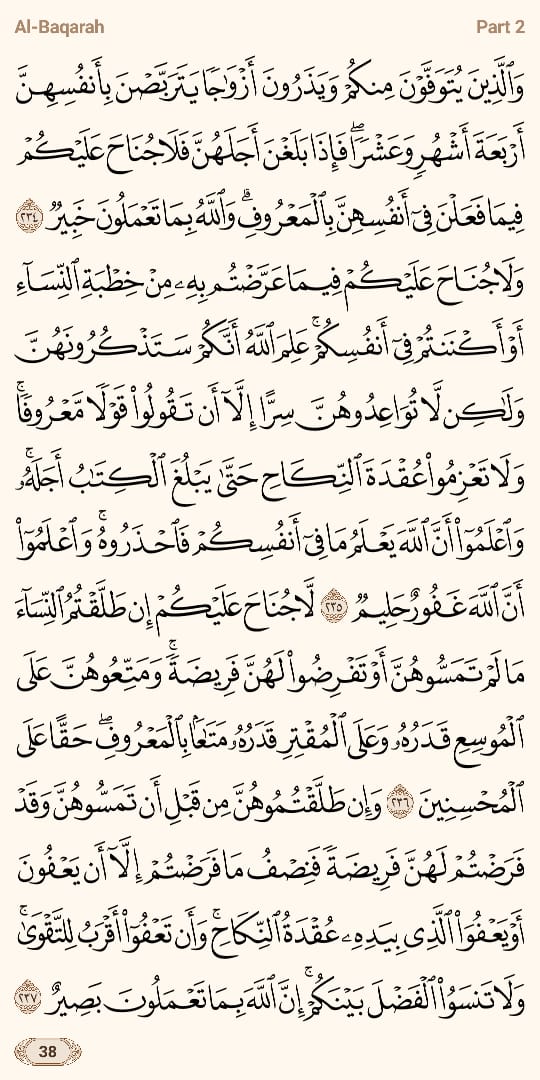 Al-Baqarah
Part 2
وَٱلَّذِينَ يُتَوَفَّوۡنَ مِنكُمۡ وَيَذَرُونَ أَزۡوَٰجٗا يَتَرَبَّصۡنَ بِأَنفُسِهِنَّ
أَرۡبَعَةَ أَشۡهُرٖ وَعَشۡرٗاۖ فَإِذَا بَلَغۡنَ أَجَلَهُنَّ فَلَا جُنَاحَ عَلَيۡكُمۡ
فِيمَا فَعَلۡنَ فِيٓ أَنفُسِهِنَّ بِٱلۡمَعۡرُوفِۗ وَٱللَّهُ بِمَا تَعۡمَلُونَ خَبِيرٞ ٢٣٤
وَلَا جُنَاحَ عَلَيۡكُمۡ فِيمَا عَرَّضۡتُم بِهِۦ مِنۡ خِطۡبَةِ ٱلنِّسَآءِ
أَوۡ أَكۡنَنتُمۡ فِيٓ أَنفُسِكُمۡۚ عَلِمَ ٱللَّهُ أَنَّكُمۡ سَتَذۡكُرُونَهُنَّ
وَلَٰكِن لَّا تُوَاعِدُوهُنَّ سِرًّا إِلَّآ أَن تَقُولُواْ قَوۡلٗا مَّعۡرُوفٗاۚ
وَلَا تَعۡزِمُواْ عُقۡدَةَ ٱلنِّكَاحِ حَتَّىٰ يَبۡلُغَ ٱلۡكِتَٰبُ أَجَلَهُۥۚ
وَٱعۡلَمُوٓاْ أَنَّ ٱللَّهَ يَعۡلَمُ مَا فِيٓ أَنفُسِكُمۡ فَٱحۡذَرُوهُۚ وَٱعۡلَمُوٓاْ
أَنَّ ٱللَّهَ غَفُورٌ حَلِيمٞ ٢٣٥ لَّا جُنَاحَ عَلَيۡكُمۡ إِن طَلَّقۡتُمُ ٱلنِّسَآءَ
مَا لَمۡ تَمَسُّوهُنَّ أَوۡ تَفۡرِضُواْ لَهُنَّ فَرِيضَةٗۚ وَمَتِّعُوهُنَّ عَلَى
ٱلۡمُوسِعِ قَدَرُهُۥ وَعَلَى ٱلۡمُقۡتِرِ قَدَرُهُۥ مَتَٰعَۢا بِٱلۡمَعۡرُوفِۖ حَقًّا عَلَى
ٱلۡمُحۡسِنِينَ ٢٣٦ وَإِن طَلَّقۡتُمُوهُنَّ مِن قَبۡلِ أَن تَمَسُّوهُنَّ وَقَدۡ
فَرَضۡتُمۡ لَهُنَّ فَرِيضَةٗ فَنِصۡفُ مَا فَرَضۡتُمۡ إِلَّآ أَن يَعۡفُونَ
أَوۡ يَعۡفُوَاْ ٱلَّذِي بِيَدِهِۦ عُقۡدَةُ ٱلنِّكَاحِۚ وَأَن تَعۡفُوٓاْ أَقۡرَبُ لِلتَّقۡوَىٰۚ
وَلَا تَنسَوُاْ ٱلۡفَضۡلَ بَيۡنَكُمۡۚ إِنَّ ٱللَّهَ بِمَا تَعۡمَلُونَ بَصِيرٌ ٢٣٧
38